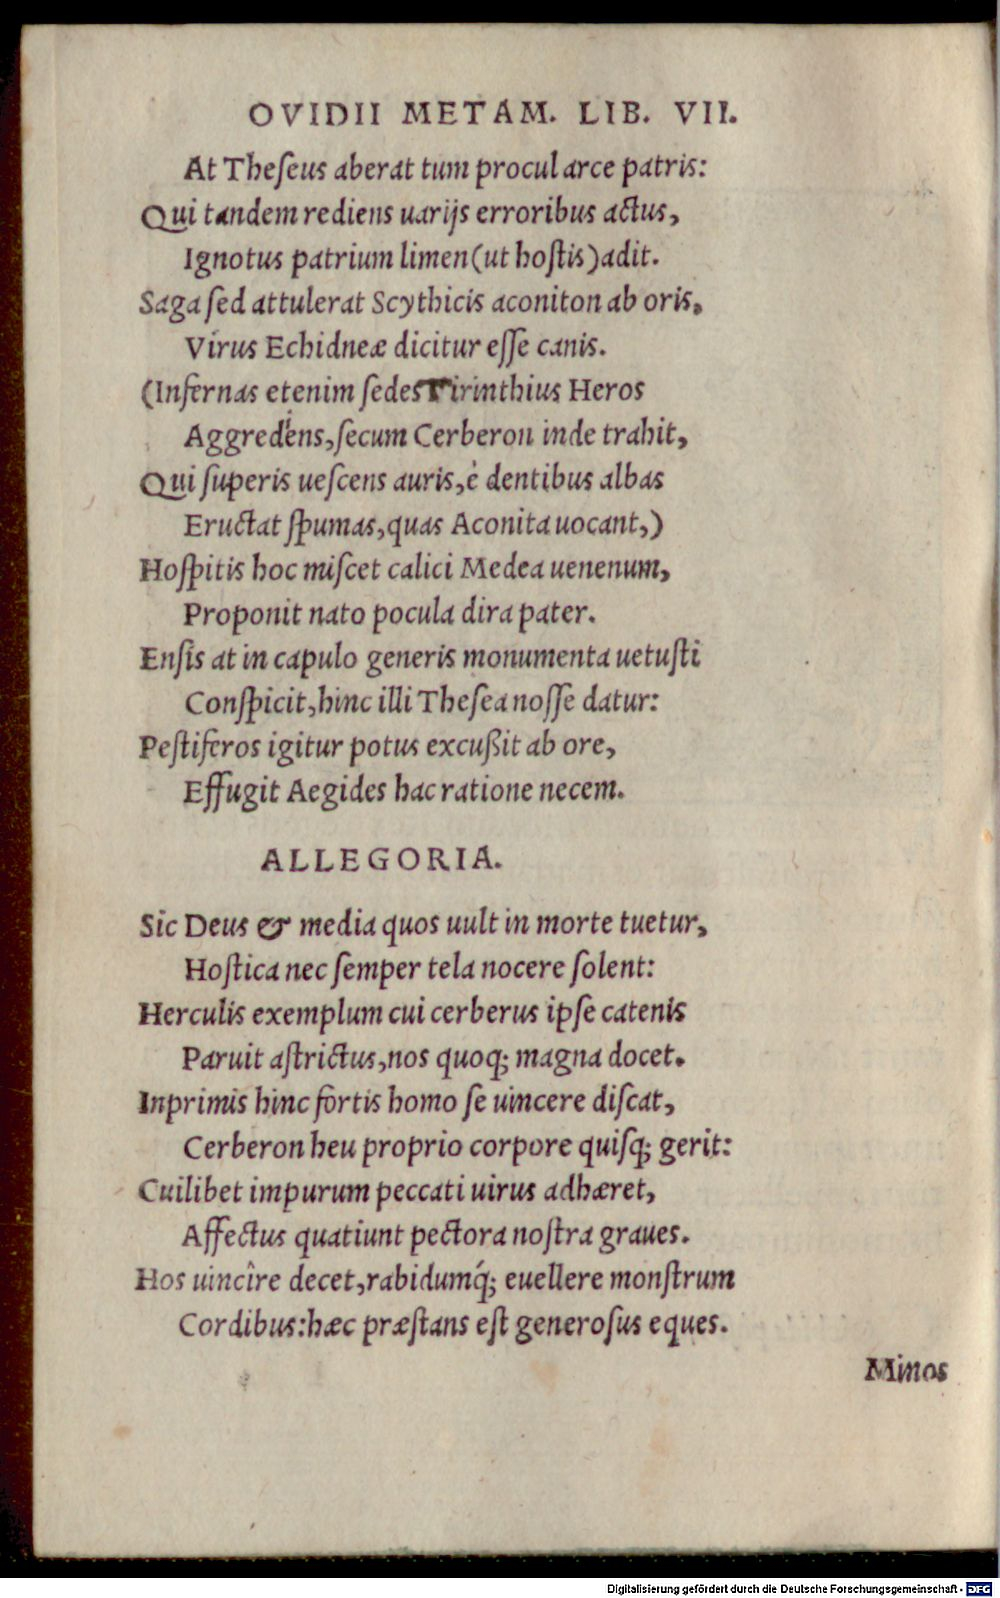 OVIDII METAM. LIB. VII.
At Theſeus aberat tum procul arce patris:
Qui tandem rediens uarijs erroribus actus,
Ignotus patrium limen (ut hoſtis) adit.
Saga ſed attulerat Scythicis aconiton ab oris,
Virus Echidneæ dicitur eſſe canis.
(Infernas etenim ſedes Tirinthius Heros
Aggrediens, ſecum Cerberon inde trahit,
Qui ſuperis ueſcens auris, è dentibus albas
Eructat ſpumas, quas Aconita uocant,)
Hoſpitis hoc miſcet calici Medea uenenum,
Proponit nato pocula dira pater.
Enſis at in capulo generis monumenta uetuſti
Conſpicit, hinc illi Theſea noſſe datur:
Peſtiferos igitur potus excußit ab ore,
Effugit Aegides hac ratione necem.
ALLEGORIA.
Sic Deus & media quos uult in morte tuetur,
Hoſtica nec ſemper tela nocere ſolent:
Herculis exemplum cui cerberus ipſe catenis
Paruit aſtrictus, nos quoq; magna docet.
Inprimis hinc fortis homo ſe uincere diſcat,
Cerberon heu proprio corpore quiſq; gerit:
Cuilibet impurum peccati uirus adhæret,
Affectus quatiunt pectora noſtra graues.
Hos uincîre decet, rabidumq́; euellere monſtrum
Cordibus: hæc præſtans eſt generoſus eques.
Minos
Digitalisierung gefördert durch die Deutsche Forschungsgemeinschaft - DFG